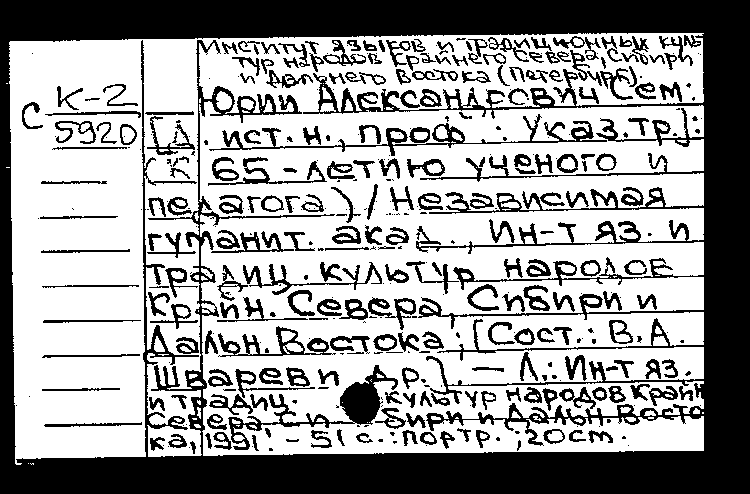 Институт языков и традиционных куль
тур народов Крайнего Севера, Сибири
и Дальнего Востока (Петербург).
К-2
С
5920
Юрий Александрович Сем:
[Д. ист. н., проф.: Указ. тр.]:
(К 65-летию ученого и
педагога) / Независимая
гуманит. акад., Ин-т яз. и
традиц. культур народов
Крайн. Севера, Сибири и
Дальн. Востока; [Сост.: В.А.
Шварев и др.]. — Л.: Ин-т яз.
и традиц. культур народов Крайн
Севера Си бири и Дальн. Восто
ка, 1991. - 51 с.: портр.; 20см.